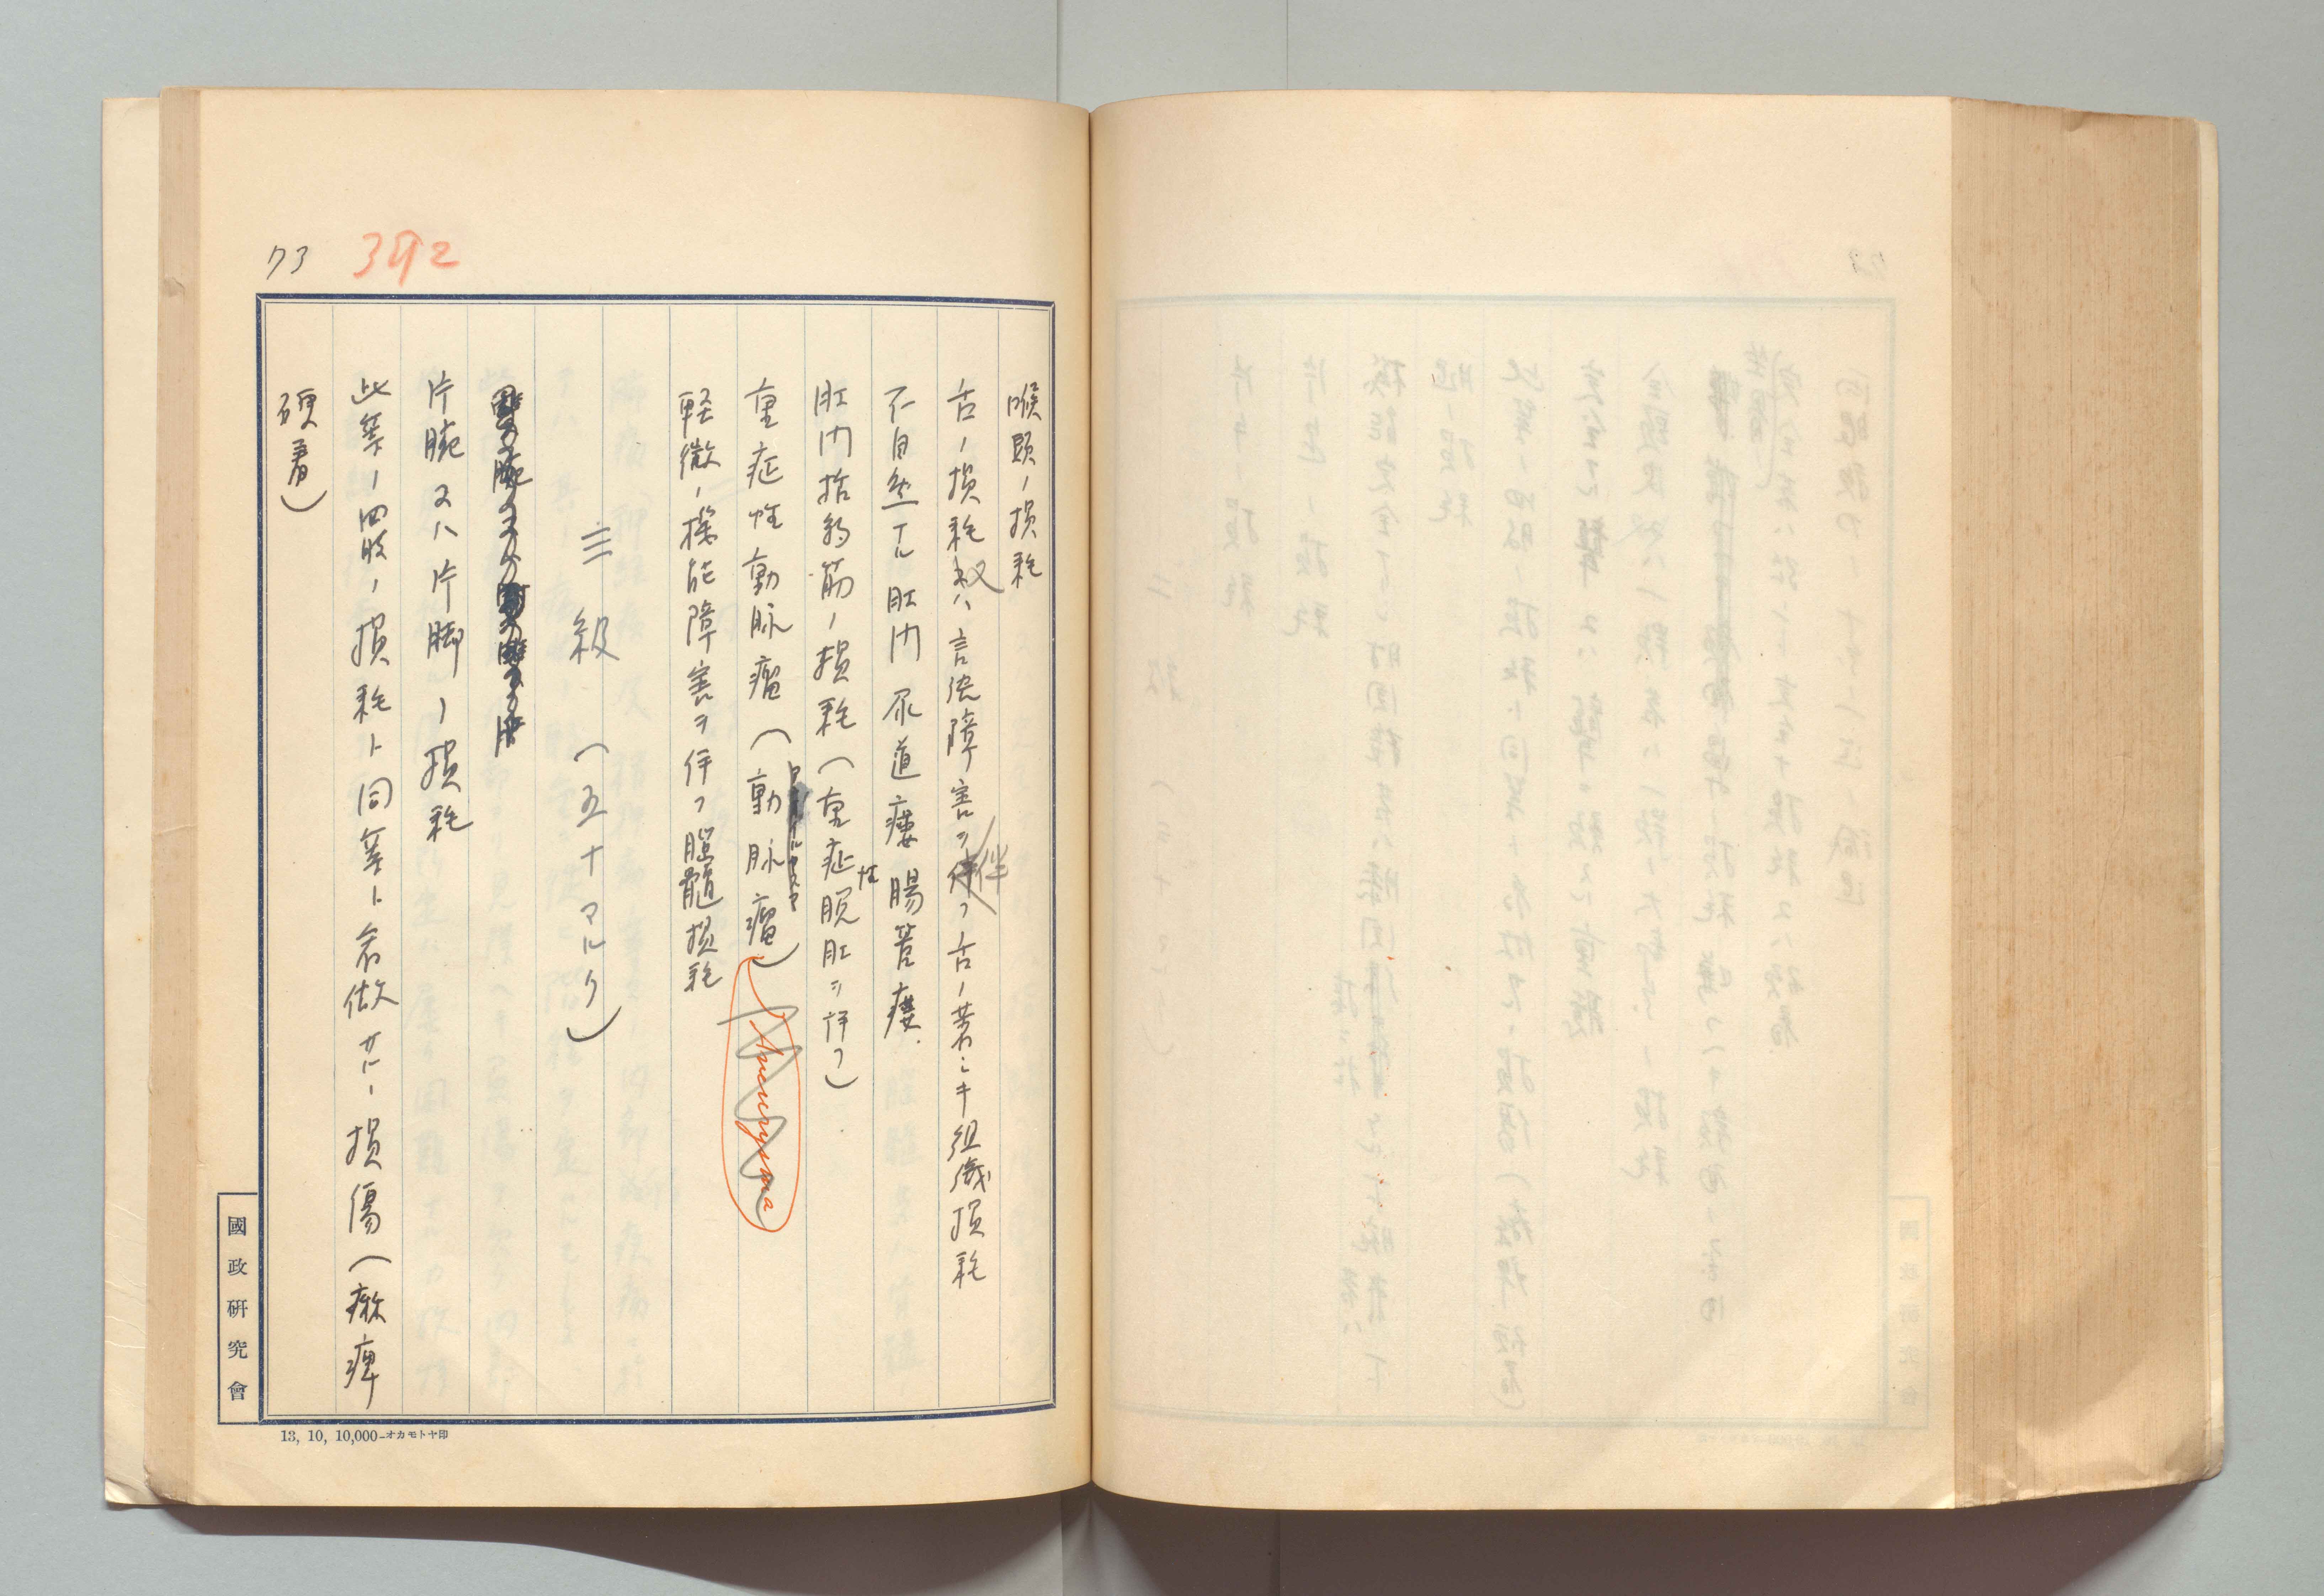 73 392
喉頭ノ損耗
舌ノ損耗又ハ言語障害ヲ伴フ舌ノ著シキ組織損耗
不自然ナル肛門尿道瘻腸管瘻
肛門括約筋ノ損耗(重症性脱肛ヲ伴フ)
重症性動脈瘤(動脈瘤)
Aneurysma
軽微ノ機能障害ヲ伴フ脳髄損耗
三級(五十マルク)
片腕又ハ片脚ノ損耗
此等ノ四肢ノ損耗ト同等ト看做サルヽ損傷(痲痺
硬着)
國政研究會
13, 10, 10,000-オカモトヤ印